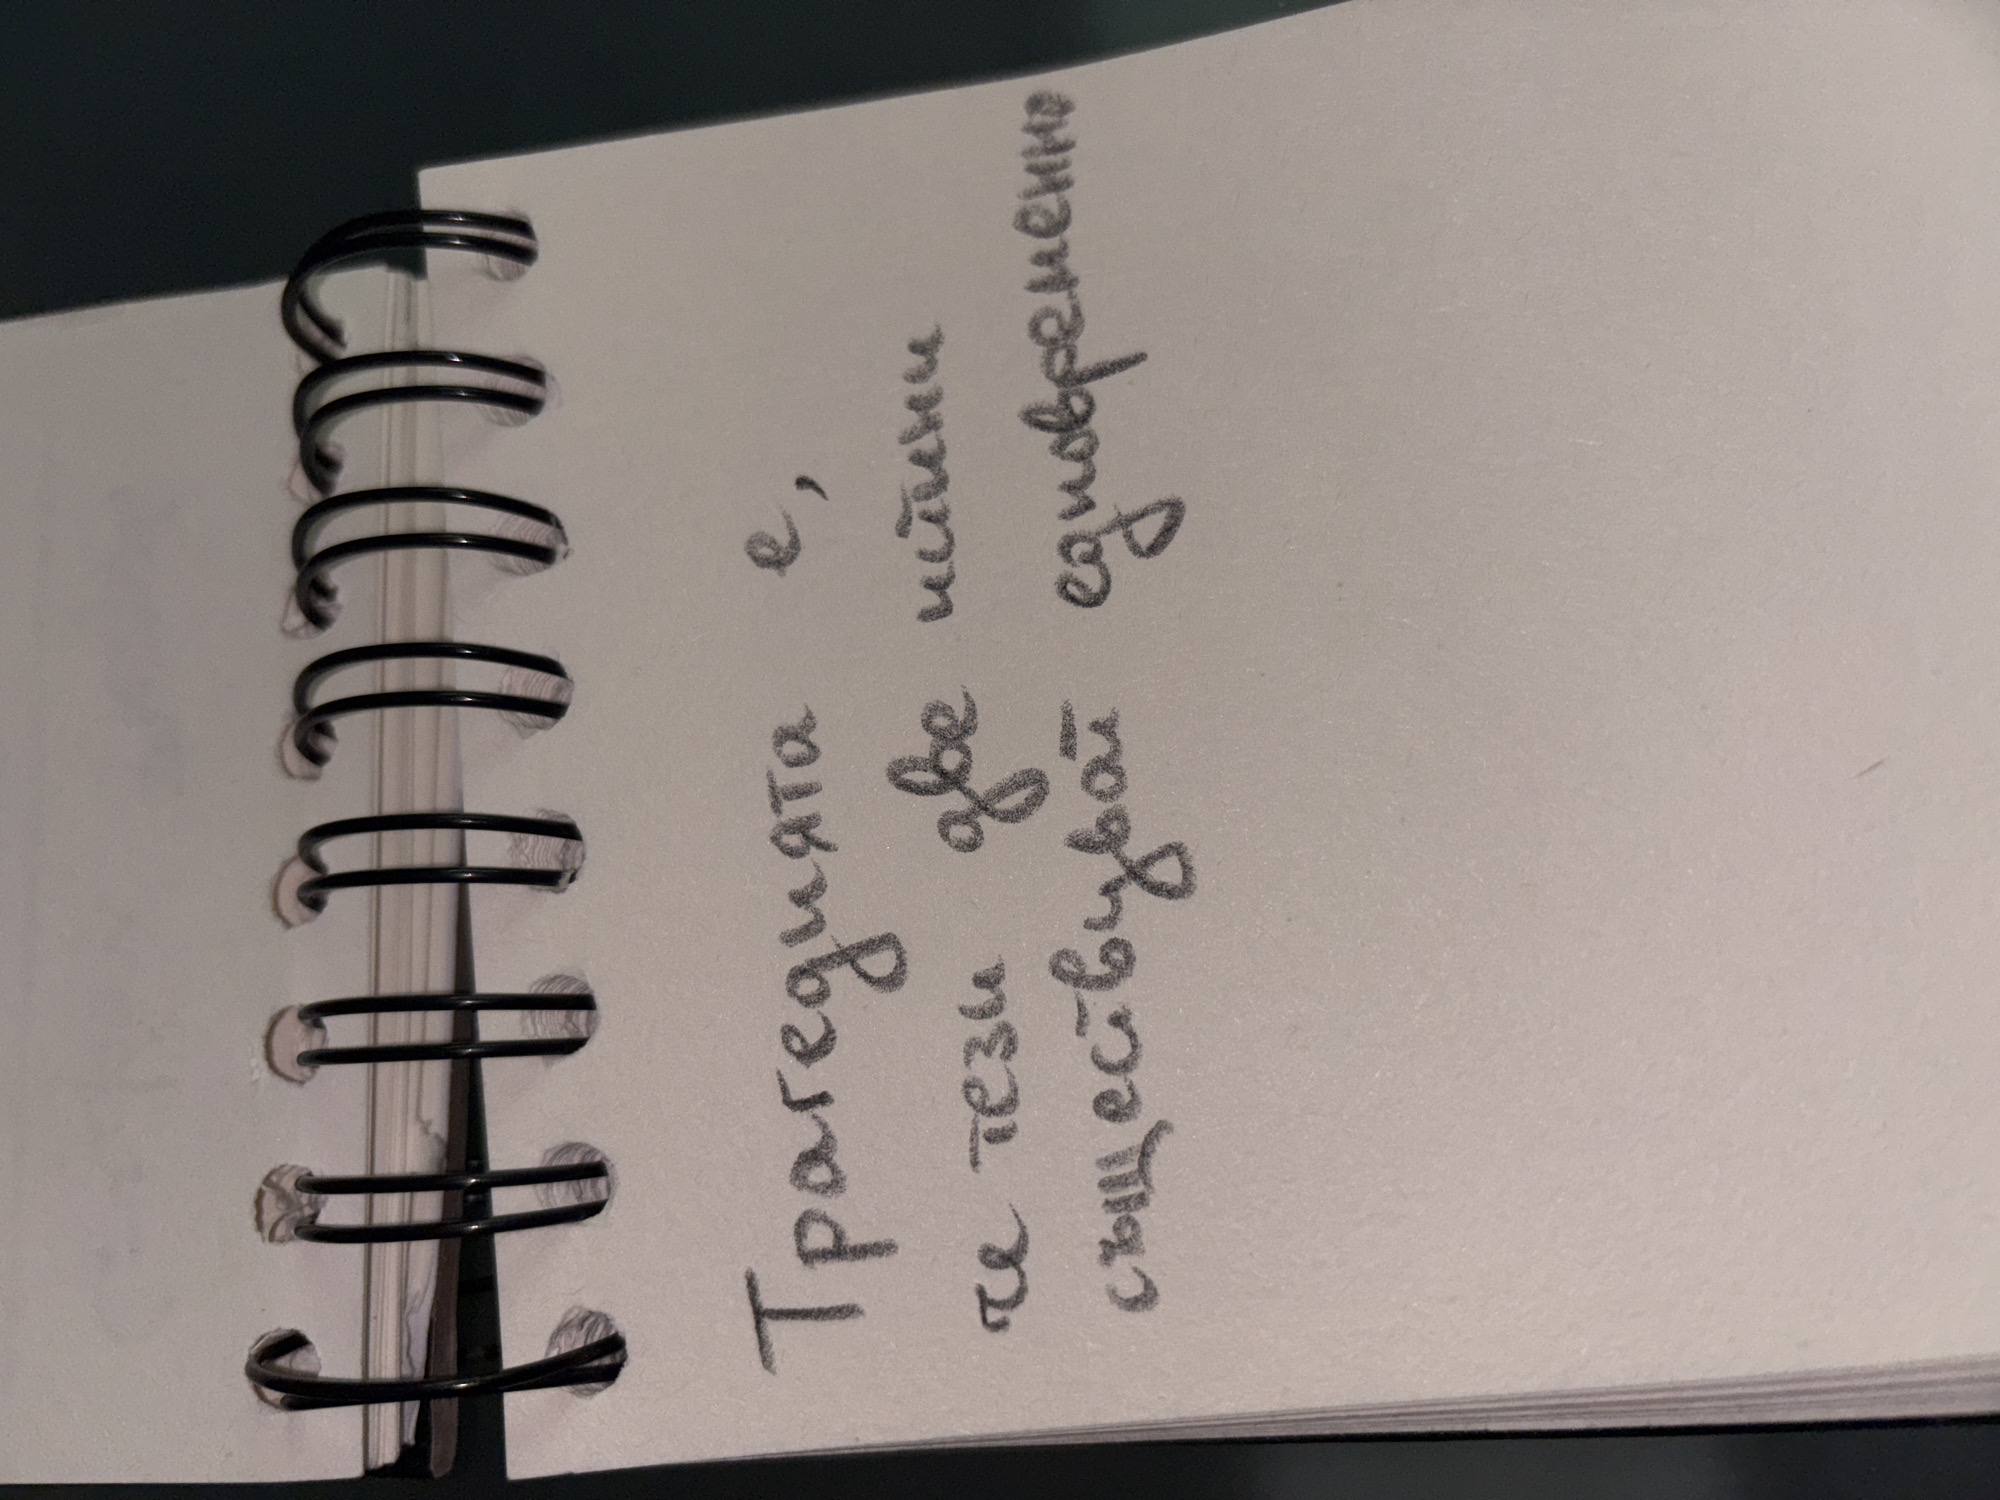 Трагедията е,
че тези две истини
съществуват едновременно